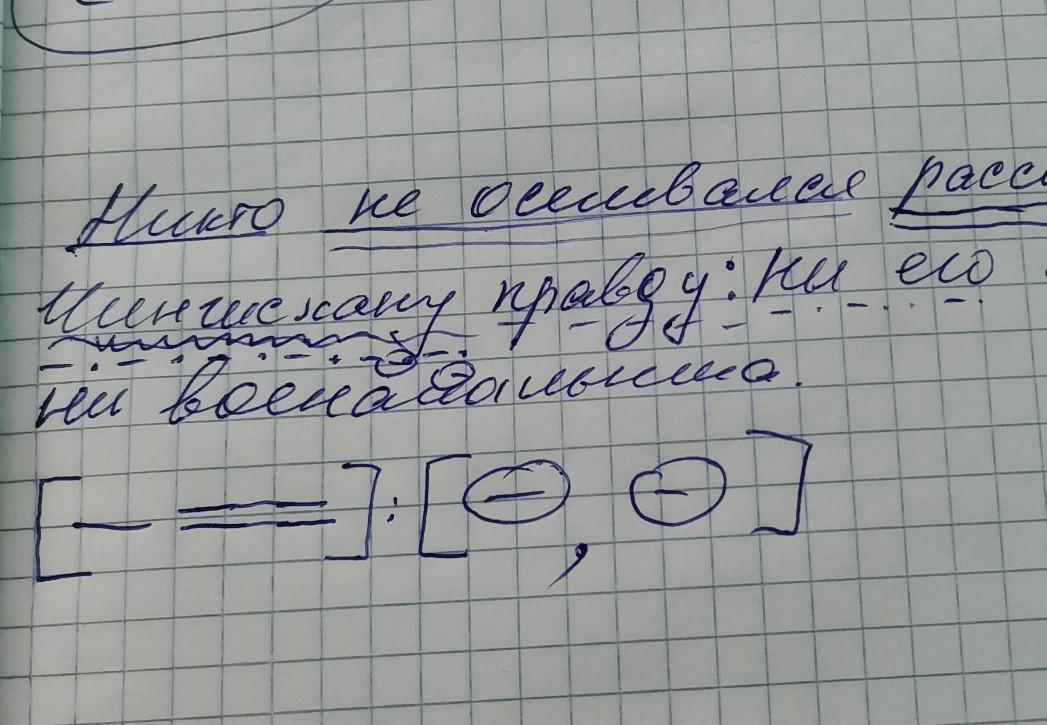 Никто не осмеливался расс
Чингисхану правду: ни его
ни
[— =]: [—, —]